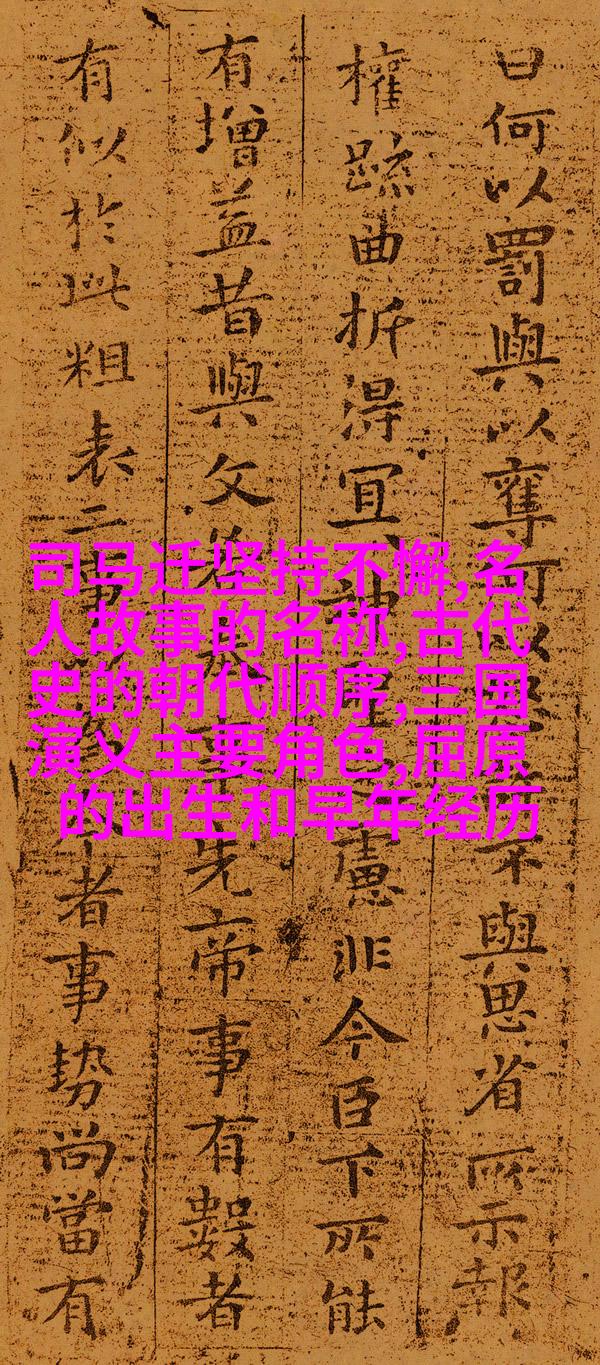 曰何以罰與以奪可以不與思省所示報
權疏曲折得宜神慮非今臣下所能
有增益昔與文若事先帝事有數者
有似於此粗表二事者事勢尚當有
司马迁坚持不懈,名
人故事的名称,古代
史的朝代顺序,三国
演义主要角色,屈原
的出生和早年经历